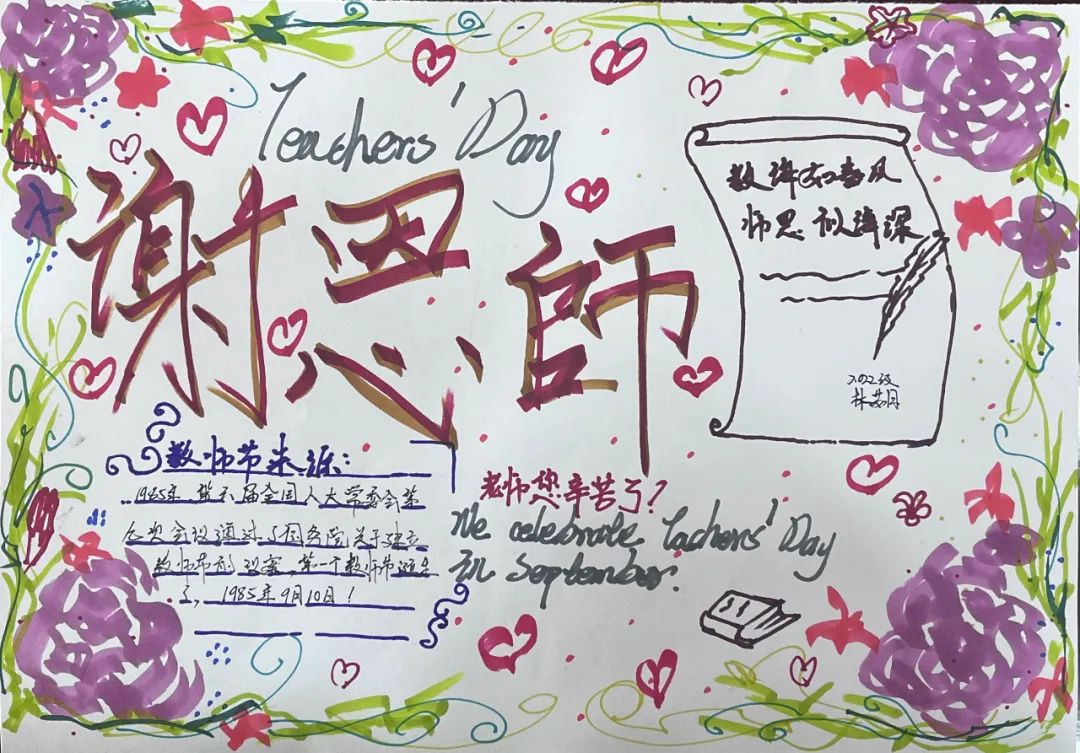 Teachers' Day
谢恩師
教诲如春风
师恩似海深
202级
教师节来源:
1985年,第六届全国人大常委会第
九次会议通过了国务院关于建立
教师节的议案,第一个教师节诞生
了, 1985年9月10日!
老师您辛苦了!
We celebrate Teachers' Day
in September.